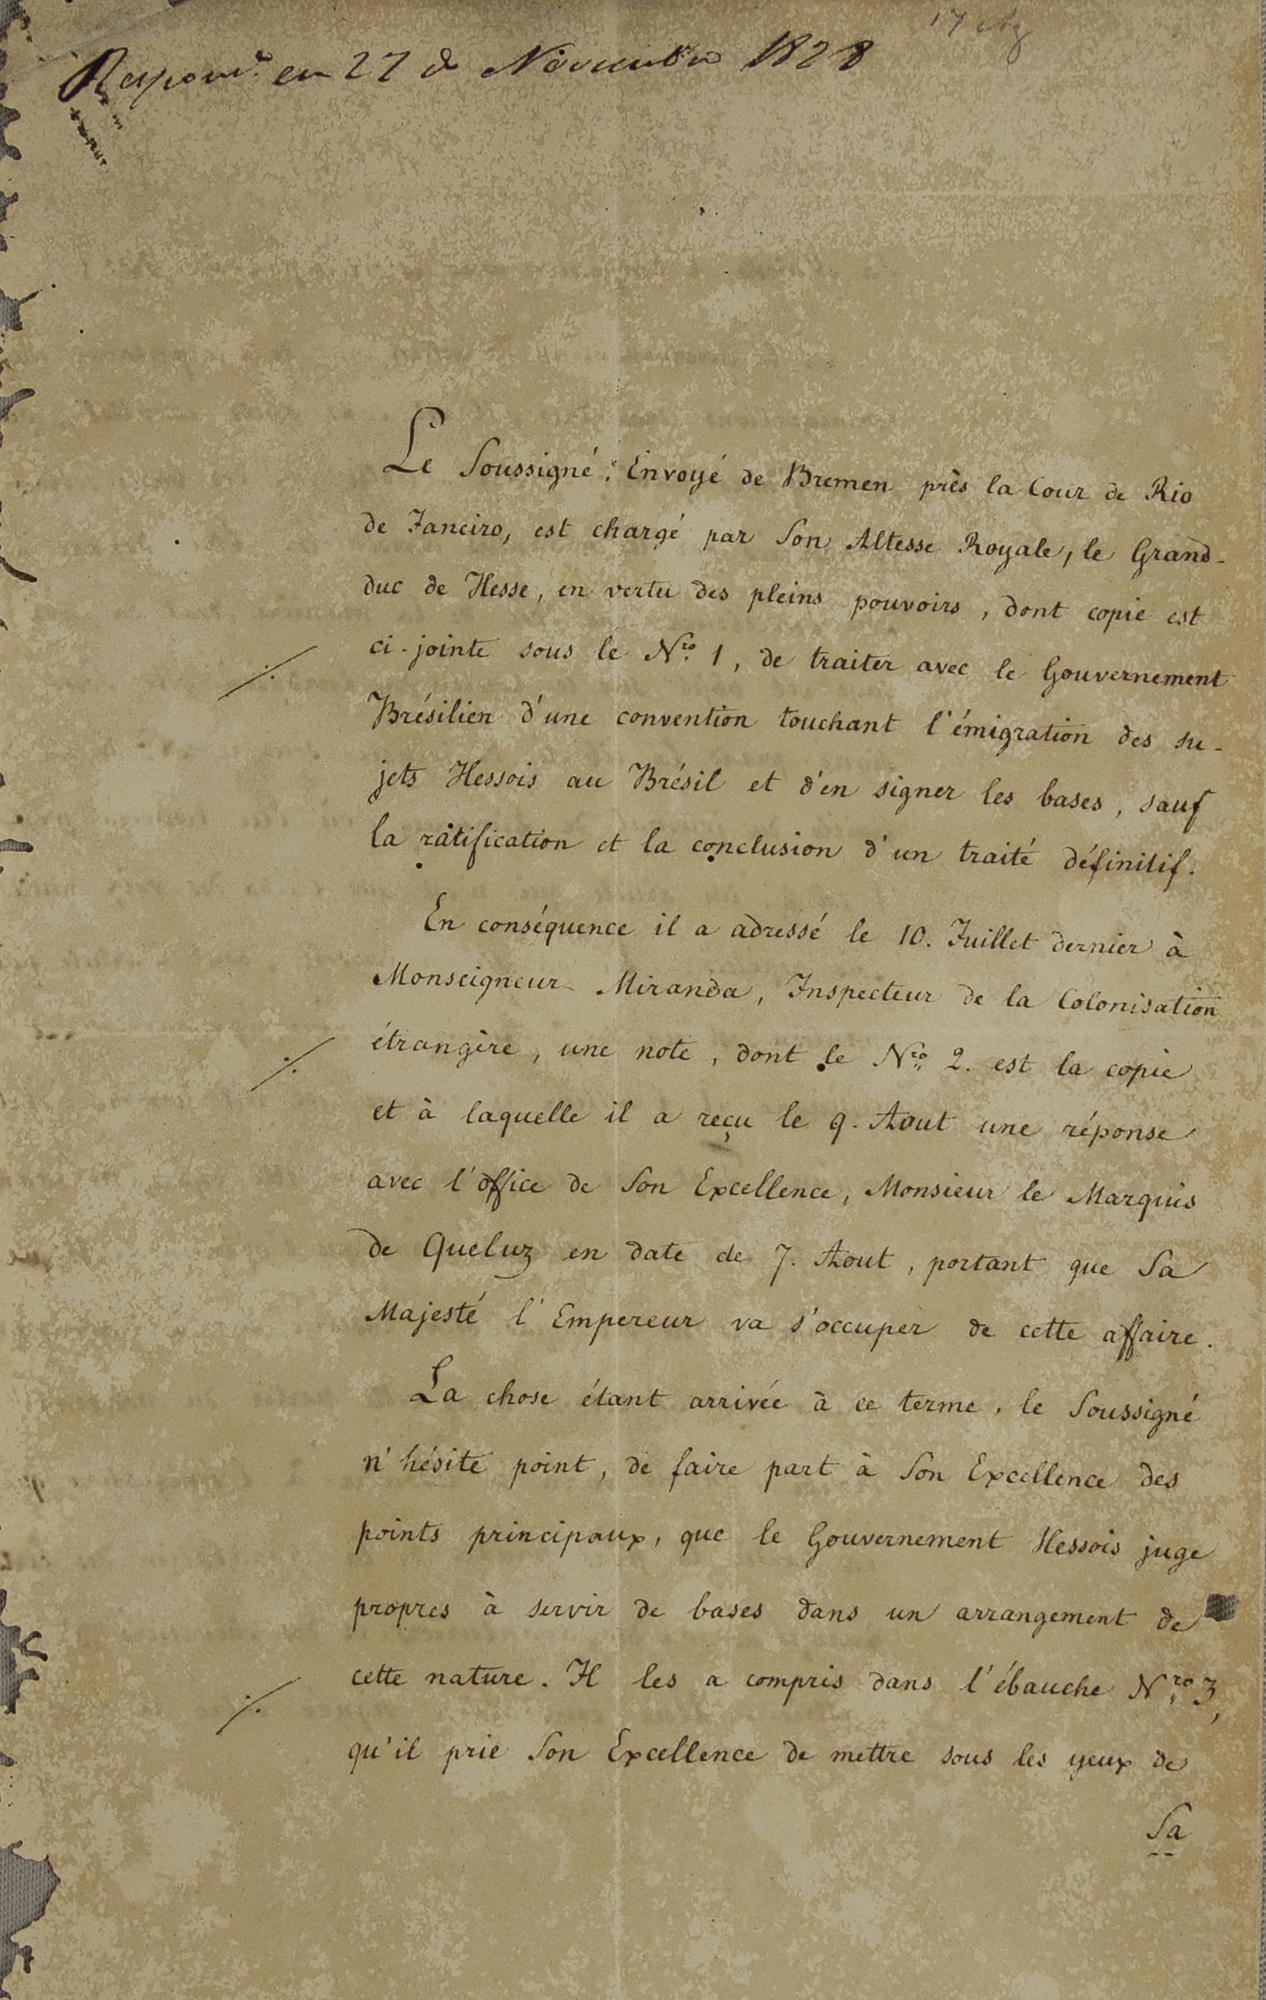 Respond.º em 27 de Novembro 1828
17 Ag
Le Soussigné, Envoyé de Bremen près la Cour de Rio
de Janeiro, est chargé par Son Altesse Royale, le Grand-
duc de Hesse, en vertu des pleins pouvoirs, dont copie est
ci-jointe sous le Nro. 1, de traiter avec le Gouvernement
Brésilien d'une convention touchant l'émigration des su-
jets Hessois au Brésil et d'en signer les bases, sauf
la ratification et la conclusion d'un traité définitif.
En conséquence il a adressé le 10. Juillet dernier à
Monseigneur Miranda, Inspecteur de la Colonisation
étrangère, une note, dont le Nro. 2. est la copie
et à laquelle il a reçu le 9. Aout une réponse
avec l'office de Son Excellence, Monsieur le Marquis
de Queluz en date de 7. Aout, portant que Sa
Majesté l'Empereur va s'occuper de cette affaire.
La chose étant arrivée à ce terme, le Soussigné
n'hésite point, de faire part à Son Excellence des
points principaux, que le Gouvernement Hessois juge
propres à servir de bases dans un arrangement de
cette nature. Il les a compris dans l'ébauche Nro. 3,
qu'il prie Son Excellence de mettre sous les yeux de
Sa